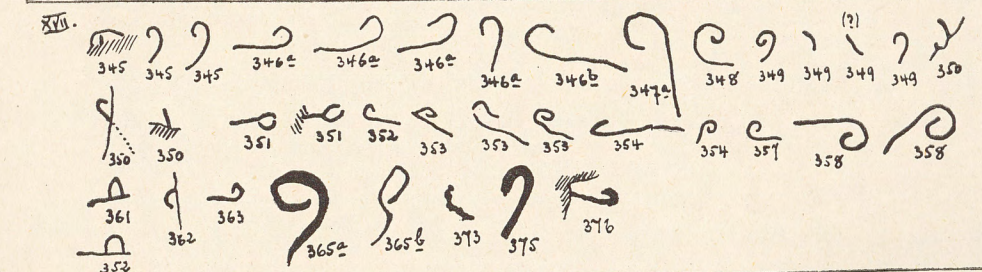 XVII. (?)
345 345 345 346a 346a 346a 346a 346b 347a 348 349 349 349 349 350
350 350 351 351 352 353 353 353 354 354 357 358 358
361 362 363 365a 365b 373 375 376
352